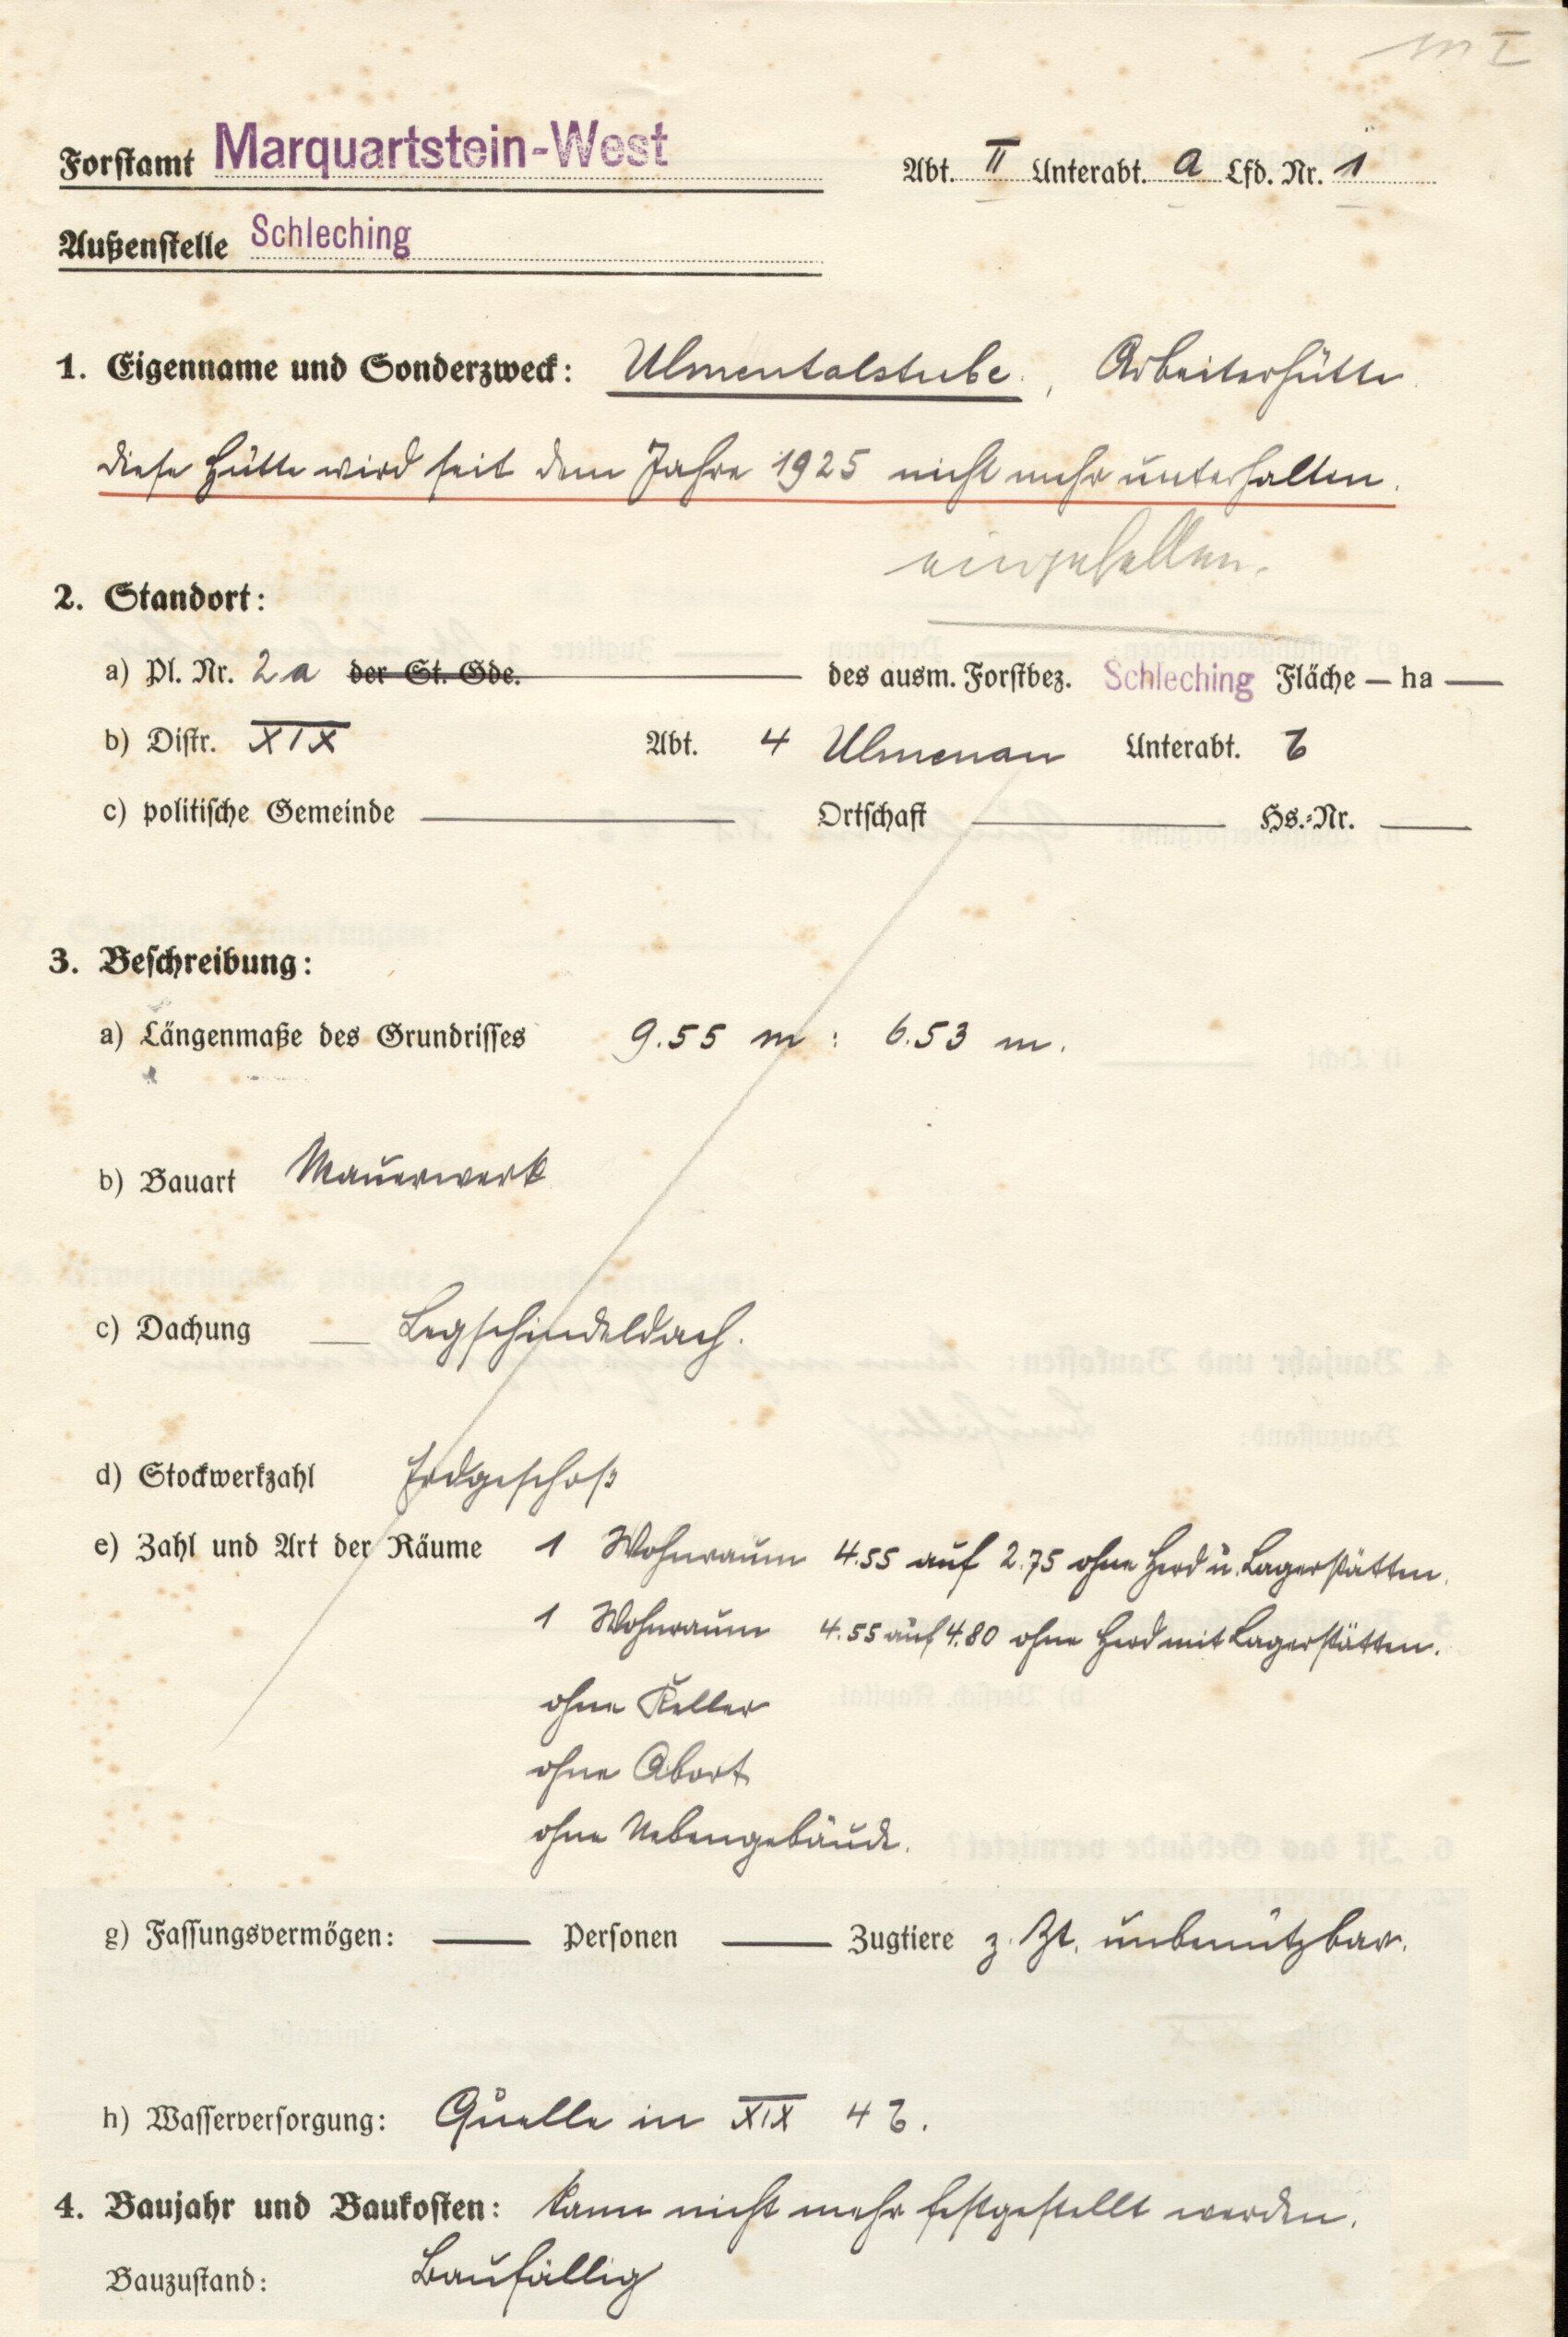 m I
Forstamt Marquartstein-West Abt. II Unterabt. a Lfd. Nr. 1
Außenstelle Schleching
1. Eigenname und Sonderzweck: Ulmentalstube, Arbeiterhütte
diese Hütte wird seit dem Jahre 1925 nicht mehr unterhalten.
eingefallen.
2. Standort:
a) Pl. Nr. 2a der St. Gde. des ausm. Forstbez. Schleching Fläche — ha —
b) Distr. XIX Abt. 4 Ulmenau Unterabt. b
c) politische Gemeinde — Ortschaft — Hs.-Nr. —
3. Beschreibung:
a) Längenmaße des Grundrisses 9.55 m : 6.53 m.
b) Bauart Mauerwerk
c) Dachung — Legschindeldach.
d) Stockwerkzahl Erdgeschoß
e) Zahl und Art der Räume 1 Wohnraum 4.55 auf 2.75 ohne Herd u. Lagerstätten.
1 Wohnraum 4.55 auf 4.80 ohne Herd mit Lagerstätten.
ohne Keller
ohne Abort
ohne Nebengebäude.
g) Fassungsvermögen: — Personen — Zugtiere z. Zt. unbenützbar.
h) Wasserversorgung: Quelle in XIX 4 b.
4. Baujahr und Baukosten: kann nicht mehr festgestellt werden.
Bauzustand: Baufällig